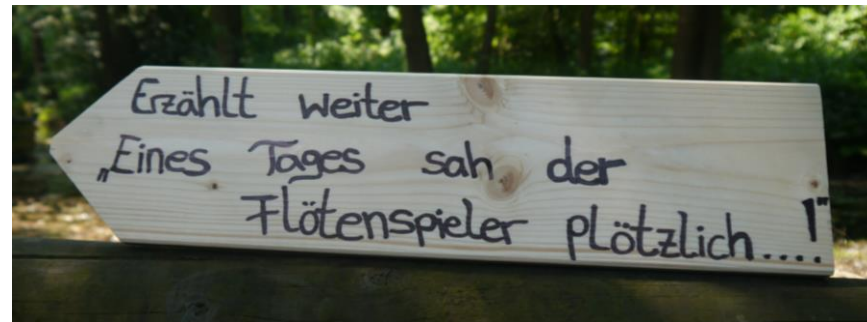 Erzählt weiter
„Eines Tages sah der
Flötenspieler plötzlich....!"